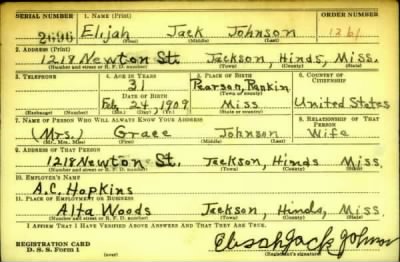 SERIAL NUMBER 1. NAME (Print) ORDER NUMBER
2696 Elijah Jack Johnson 1261
(First) (Middle) (Last)
2. ADDRESS (Print)
1218 Newton St. Jackson, Hinds, Miss.
(Number and street or R. F. D. number) (Town) (County) (State)
3. TELEPHONE 4. AGE IN YEARS 5. PLACE OF BIRTH 6. COUNTRY OF CITIZENSHIP
31 Pearson, Rankin
DATE OF BIRTH (Town or county)
Feb 24, 1909 Miss United States
(Exchange) (Number) (Mo.) (Day) (Yr.) (State or country)
7. NAME OF PERSON WHO WILL ALWAYS KNOW YOUR ADDRESS 8. RELATIONSHIP OF THAT PERSON
(Mrs.) Grace Johnson Wife
(Mr., Mrs., Miss) (First) (Middle) (Last)
9. ADDRESS OF THAT PERSON
1218 Newton St. Jackson, Hinds Miss.
(Number and street or R. F. D. number) (Town) (County) (State)
10. EMPLOYER'S NAME
A.C. Hopkins
11. PLACE OF EMPLOYMENT OR BUSINESS
Alta Woods Jackson, Hinds, Miss.
(Number and street or R. F. D. number) (Town) (County) (State)
I AFFIRM THAT I HAVE VERIFIED ABOVE ANSWERS AND THAT THEY ARE TRUE.
REGISTRATION CARD
D. S. S. Form 1 (over) (Registrant's signature)